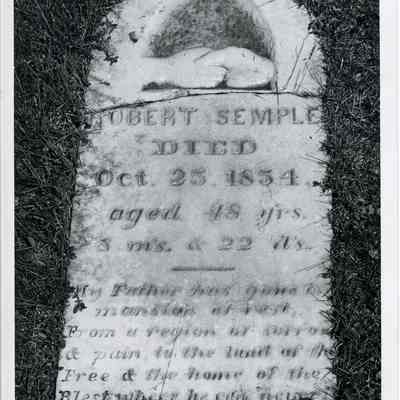 ROBERT SEMPLE
DIED
Oct. 25. 1854.
aged 48 yrs.
8 m's. & 22 d's.
My Father has gone to
mansion of rest,
From a region of sorrow
& pain, to the land of the
Free & the home of the
Blest where he can never